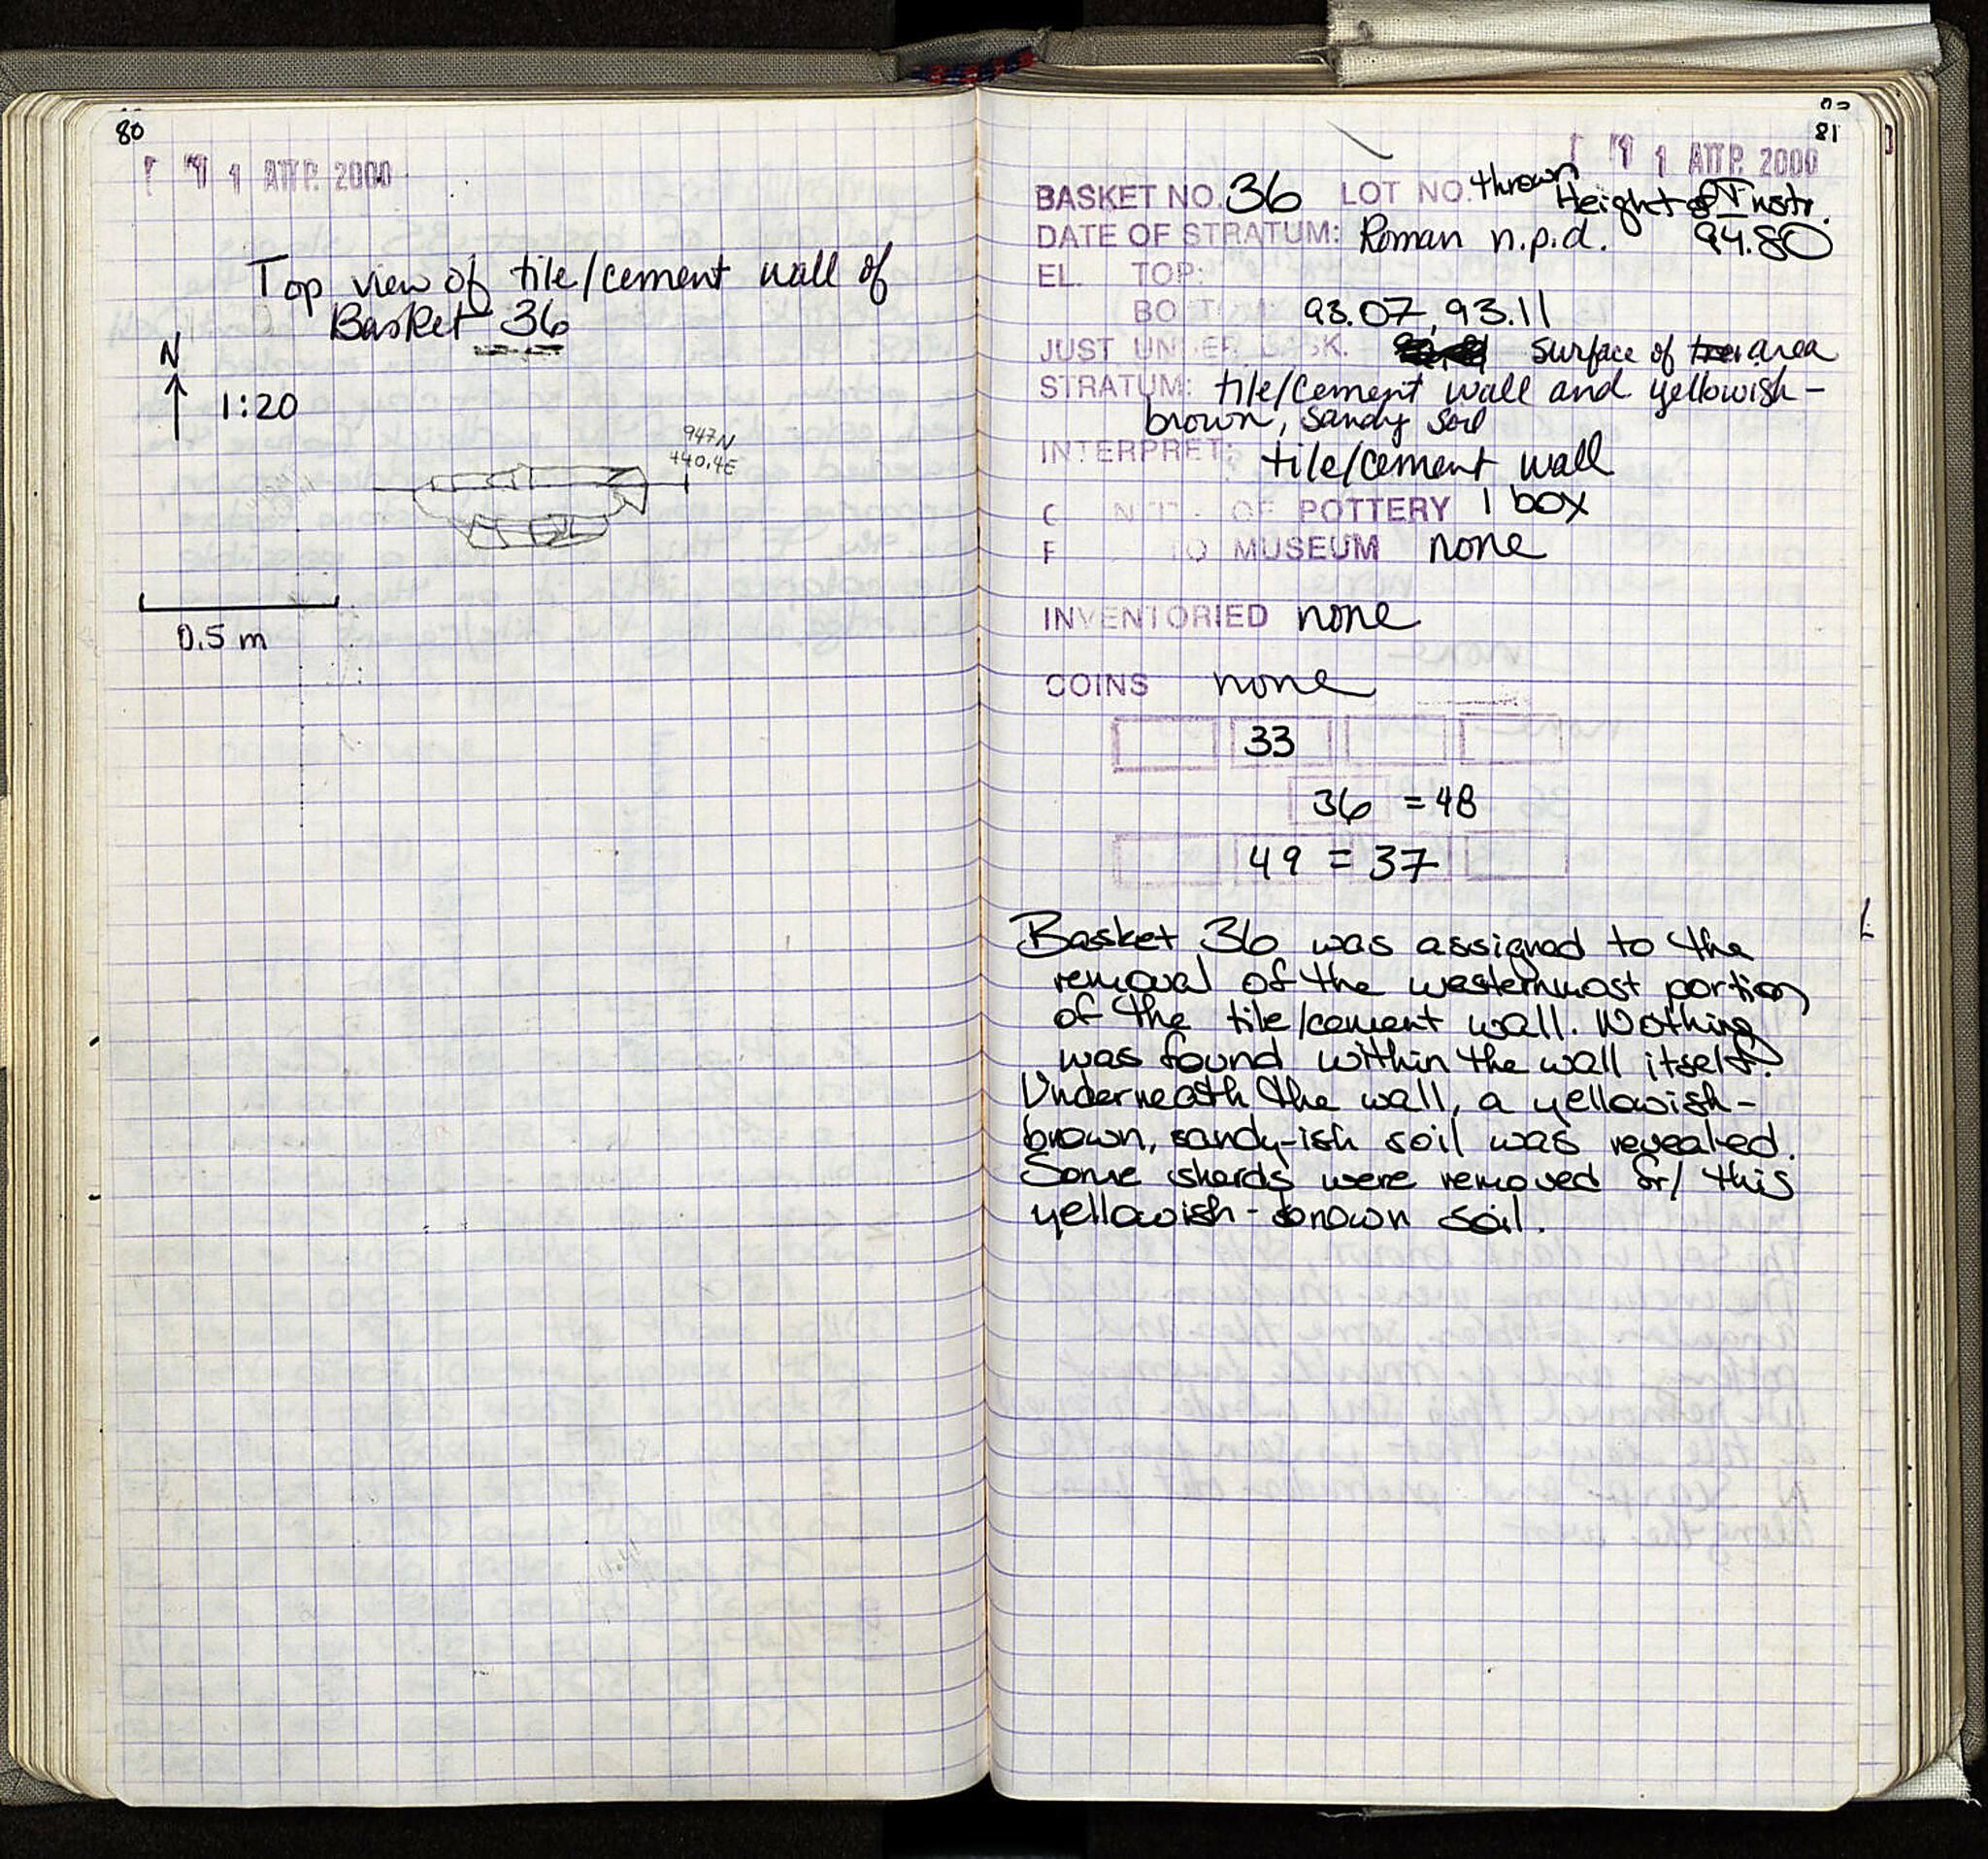 80
1 ΑΠΡ. 2000
Top view of tile/cement wall of
Basket 36
N
1:20
947N
440.4E
0.5 m
81
1 ΑΠΡ. 2000
BASKET NO. 36 LOT NO. thrown
Height of Instr.
DATE OF STRATUM: Roman n.p.d. 94.80
EL. TOP:
BOTTOM: 93.07, 93.11
JUST UNDER BASK. surface of area
STRATUM: tile/cement wall and yellowish-
brown, sandy soil
INTERPRET: tile/cement wall
OF POTTERY 1 box
TO MUSEUM none
INVENTORIED none
COINS none
33
36 = 48
49 = 37
Basket 36 was assigned to the
removal of the westernmost portion
of the tile/cement wall. Nothing
was found within the wall itself.
Underneath the wall, a yellowish-
brown, sandy-ish soil was revealed.
Some sherds were removed fr/ this
yellowish-brown soil.